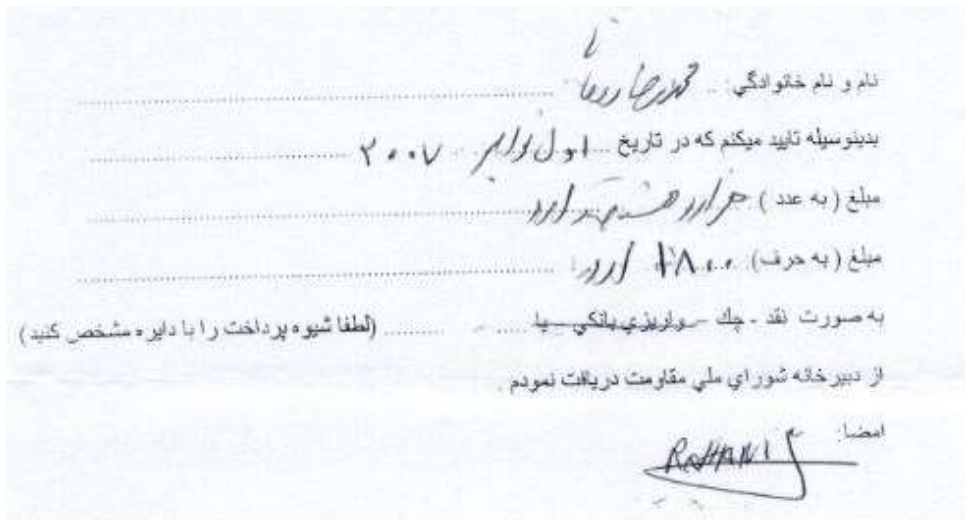 نام و نام خانوادگي: محمدرضا روحانی
بدينوسيله تاييد ميكنم كه در تاريخ اول نوامبر ۲۰۰۷
مبلغ ( به عدد ) هزار و هشتصد يورو
مبلغ ( به حرف) ۱۸۰۰ يورو
به صورت نقد - چك - واريزي بانكي - يا ............ (لطفا شيوه پرداخت را با دايره مشخص كنيد)
از دبيرخانه شوراي ملي مقاومت دريافت نمودم .
امضا: